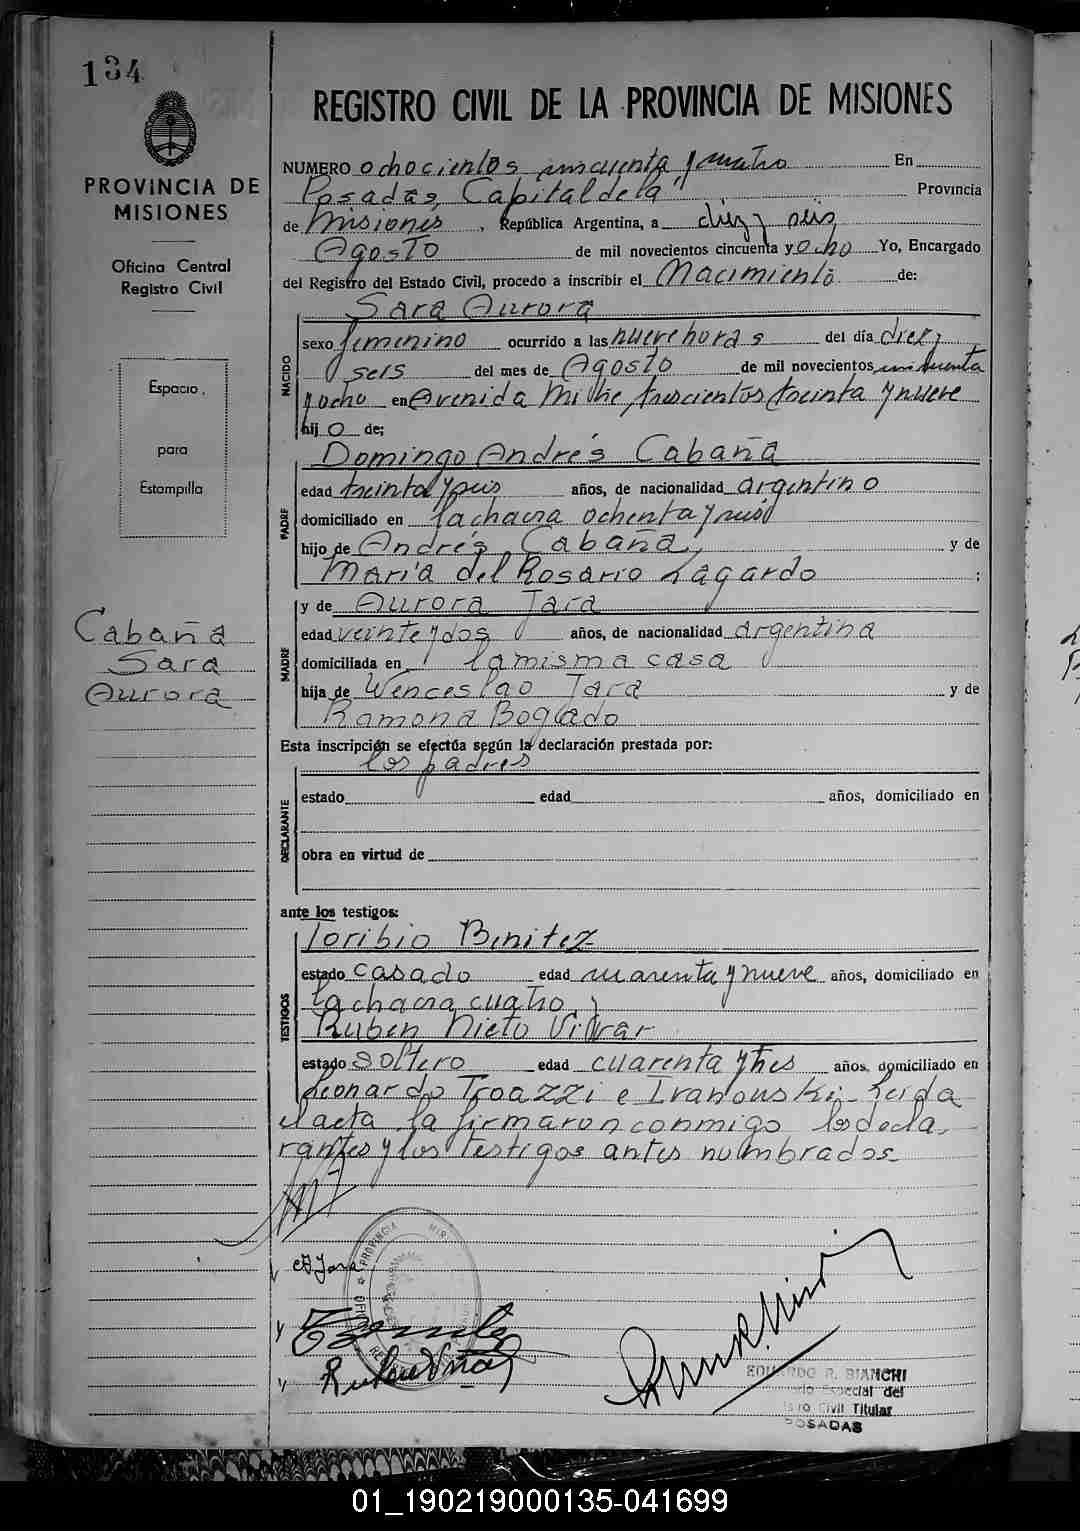 134
PROVINCIA DE
MISIONES
Oficina Central
Registro Civil
Espacio
para
Estampilla
Cabaña
Sara
Aurora
REGISTRO CIVIL DE LA PROVINCIA DE MISIONES
NUMERO ochocientos cincuenta y cuatro En
Posadas, Capital de la Provincia
de Misiones, República Argentina, a diez y seis
Agosto de mil novecientos cincuenta y ocho Yo, Encargado
del Registro del Estado Civil, procedo a inscribir el Nacimiento de:
NACIDO
Sara Aurora
sexo femenino ocurrido a las nueve horas del día diez y
seis del mes de Agosto de mil novecientos cincuenta
y ocho en Avenida Mitre, trescientos treinta y nueve
hij o de;
PADRE
Domingo Andrés Cabaña
edad treinta y seis años, de nacionalidad argentino
domiciliado en la chacra ochenta y seis
hijo de Andrés Cabaña, y de
María del Rosario Lagardo ;
MADRE
y de Aurora Jara
edad veinte y dos años, de nacionalidad argentina
domiciliada en la misma casa
hija de Wenceslao Jara y de
Ramona Bogado
Esta inscripción se efectúa según la declaración prestada por:
los padres
DECLARANTE
estado edad años, domiciliado en
obra en virtud de
ante los testigos:
TESTIGOS
Toribio Benitez
estado casado edad cuarenta y nueve años, domiciliado en
la chacra cuatro y
Ruben Nieto Vi
estado soltero edad cuarenta y tres años, domiciliado en
Leonardo Troazzi e Ivanouski. Leida
el acta, la firmaron conmigo los decla,
rantes y los testigos antes nombrados
Jara
y
y
EDUARDO R. BIANCHI
Especial del
Civil Titular
POSADAS
01_190219000135-041699